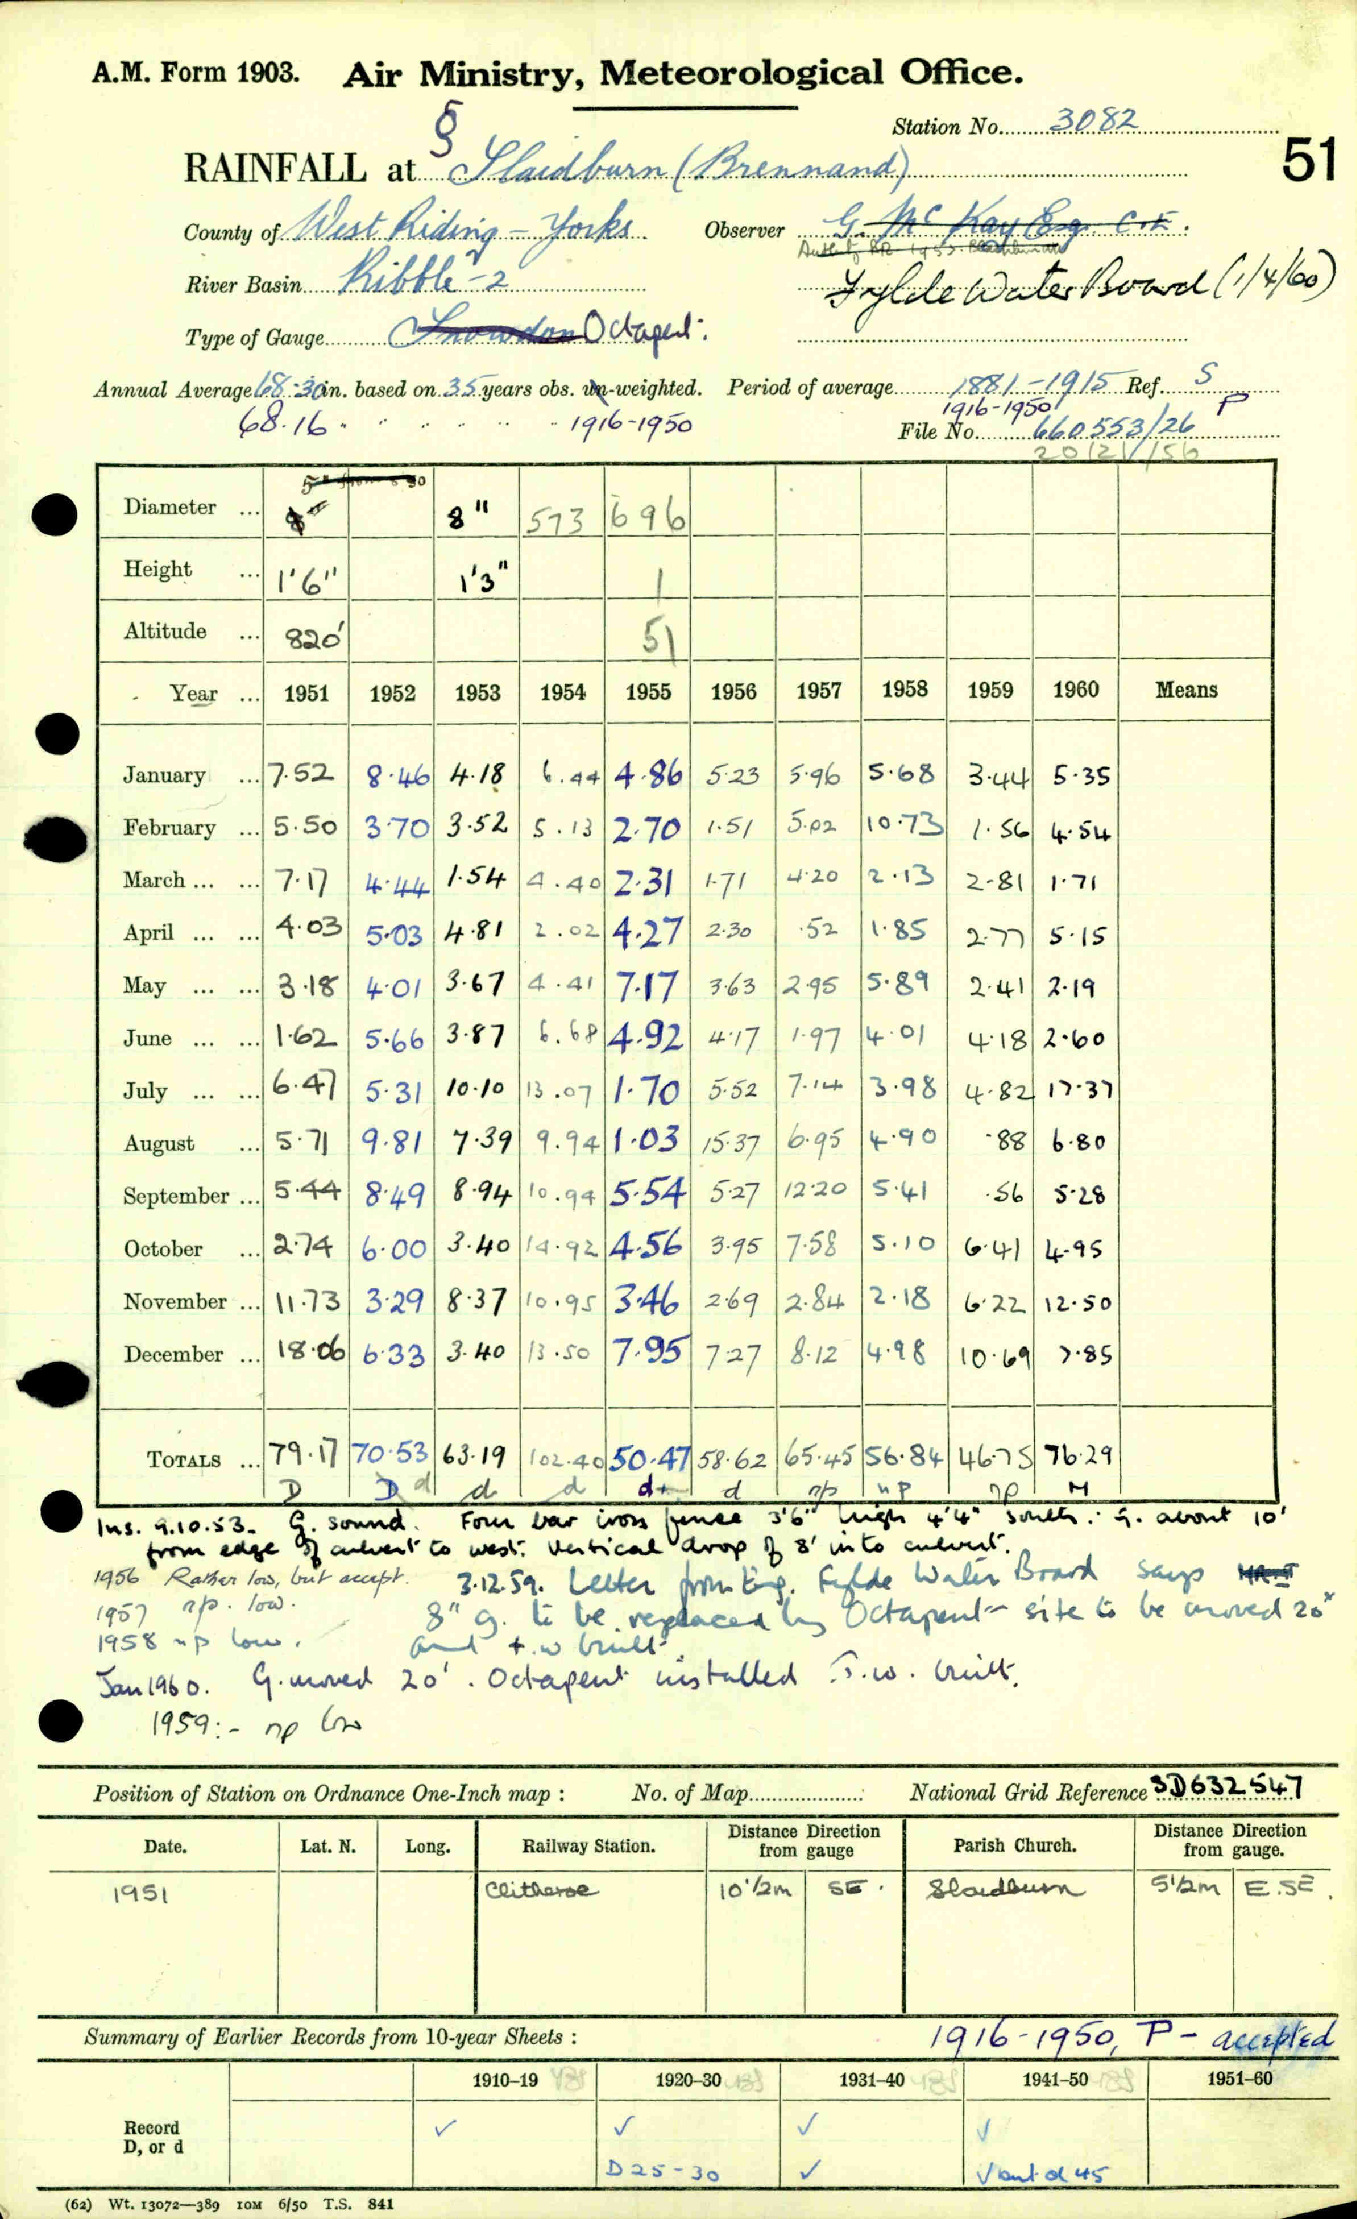 A.M. Form 1903. Air Ministry, Meteorological Office.
Station No. 3082
51
§
RAINFALL at Slaidburn (Brennand)
County of West Riding - Yorks Observer G. McKay Esq. C.E.
River Basin Ribble - 2 Fylde Water Board (1/4/60)
Type of Gauge Snowdon Octapent.
Annual Average 68.30 in. based on 35 years obs. un-weighted. Period of average 1881-1915 Ref. S
68.16 " " " " " " 1916-1950 1916-1950 P
File No. 660553/26
20/21/56
5" from 8 30
Diameter ... 8" 8" 573 696
Height ... 1'6" 1'3" 1
Altitude ... 820' 51
Year ... 1951 1952 1953 1954 1955 1956 1957 1958 1959 1960 Means
January ... 7.52 8.46 4.18 6.44 4.86 5.23 5.96 5.68 3.44 5.35
February ... 5.50 3.70 3.52 5.13 2.70 1.51 5.02 10.73 1.56 4.54
March ... ... 7.17 4.44 1.54 4.40 2.31 1.71 4.20 2.13 2.81 1.71
April ... ... 4.03 5.03 4.81 2.02 4.27 2.30 .52 1.85 2.77 5.15
May ... ... 3.18 4.01 3.67 4.41 7.17 3.63 2.95 5.89 2.41 2.19
June ... ... 1.62 5.66 3.87 6.68 4.92 4.17 1.97 4.01 4.18 2.60
July ... ... 6.47 5.31 10.10 13.07 1.70 5.52 7.14 3.98 4.82 17.37
August ... 5.71 9.81 7.39 9.94 1.03 15.37 6.95 4.90 .88 6.80
September ... 5.44 8.49 8.94 10.94 5.54 5.27 12.20 5.41 .56 5.28
October ... 2.74 6.00 3.40 14.92 4.56 3.95 7.58 5.10 6.41 4.95
November ... 11.73 3.29 8.37 10.95 3.46 2.69 2.84 2.18 6.22 12.50
December ... 18.06 6.33 3.40 13.50 7.95 7.27 8.12 4.98 10.69 7.85
TOTALS ... 79.17 70.53 63.19 102.40 50.47 58.62 65.45 56.84 46.75 76.29
D D d d d d+ d np np np M
Ins. 9.10.53. G. sound. Four bar iron fence 3'6" high 4'4" south. G. about 10'
from edge of culvert to west. Vertical drop of 8' into culvert.
1956 Rather low, but accept. 3.12.59. Letter from Eng. Fylde Water Board says
1957 np. low. 8" g. to be replaced by Octapent - site to be moved 20'
1958 np low. and t.w built.
Jan 1960. G. moved 20'. Octapent installed T.w. built.
1959:- np low
Position of Station on Ordnance One-Inch map : No. of Map National Grid Reference SD632547
Date. Lat. N. Long. Railway Station. Distance from Direction gauge Parish Church. Distance from Direction gauge.
1951 Clitheroe 10½m SE. Slaidburn 5½m E.SE.
Summary of Earlier Records from 10-year Sheets : 1916-1950, P - accepted
1910-19 1920-30 1931-40 1941-50 1951-60
Record ✓ ✓ ✓ ✓
D, or d D25-30 ✓ ✓ but d 45
(62) Wt. 13072—389 10M 6/50 T.S. 841